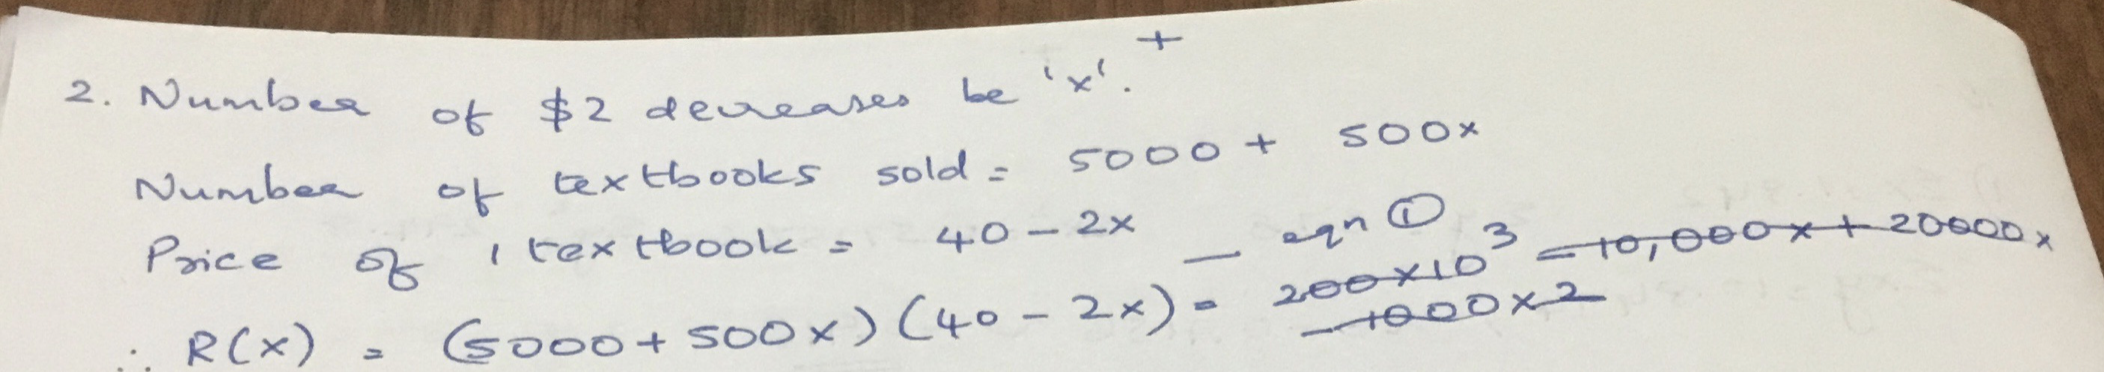 +
2. Number of $2 decreases be 'x'.
Number of textbooks sold = 5000 + 500x
Price of 1 textbook = 40 - 2x — eqn ①
∴ R(x) = (5000 + 500x) (40 - 2x) = 200×10³ - 10,000x + 20000x
- 1000x2